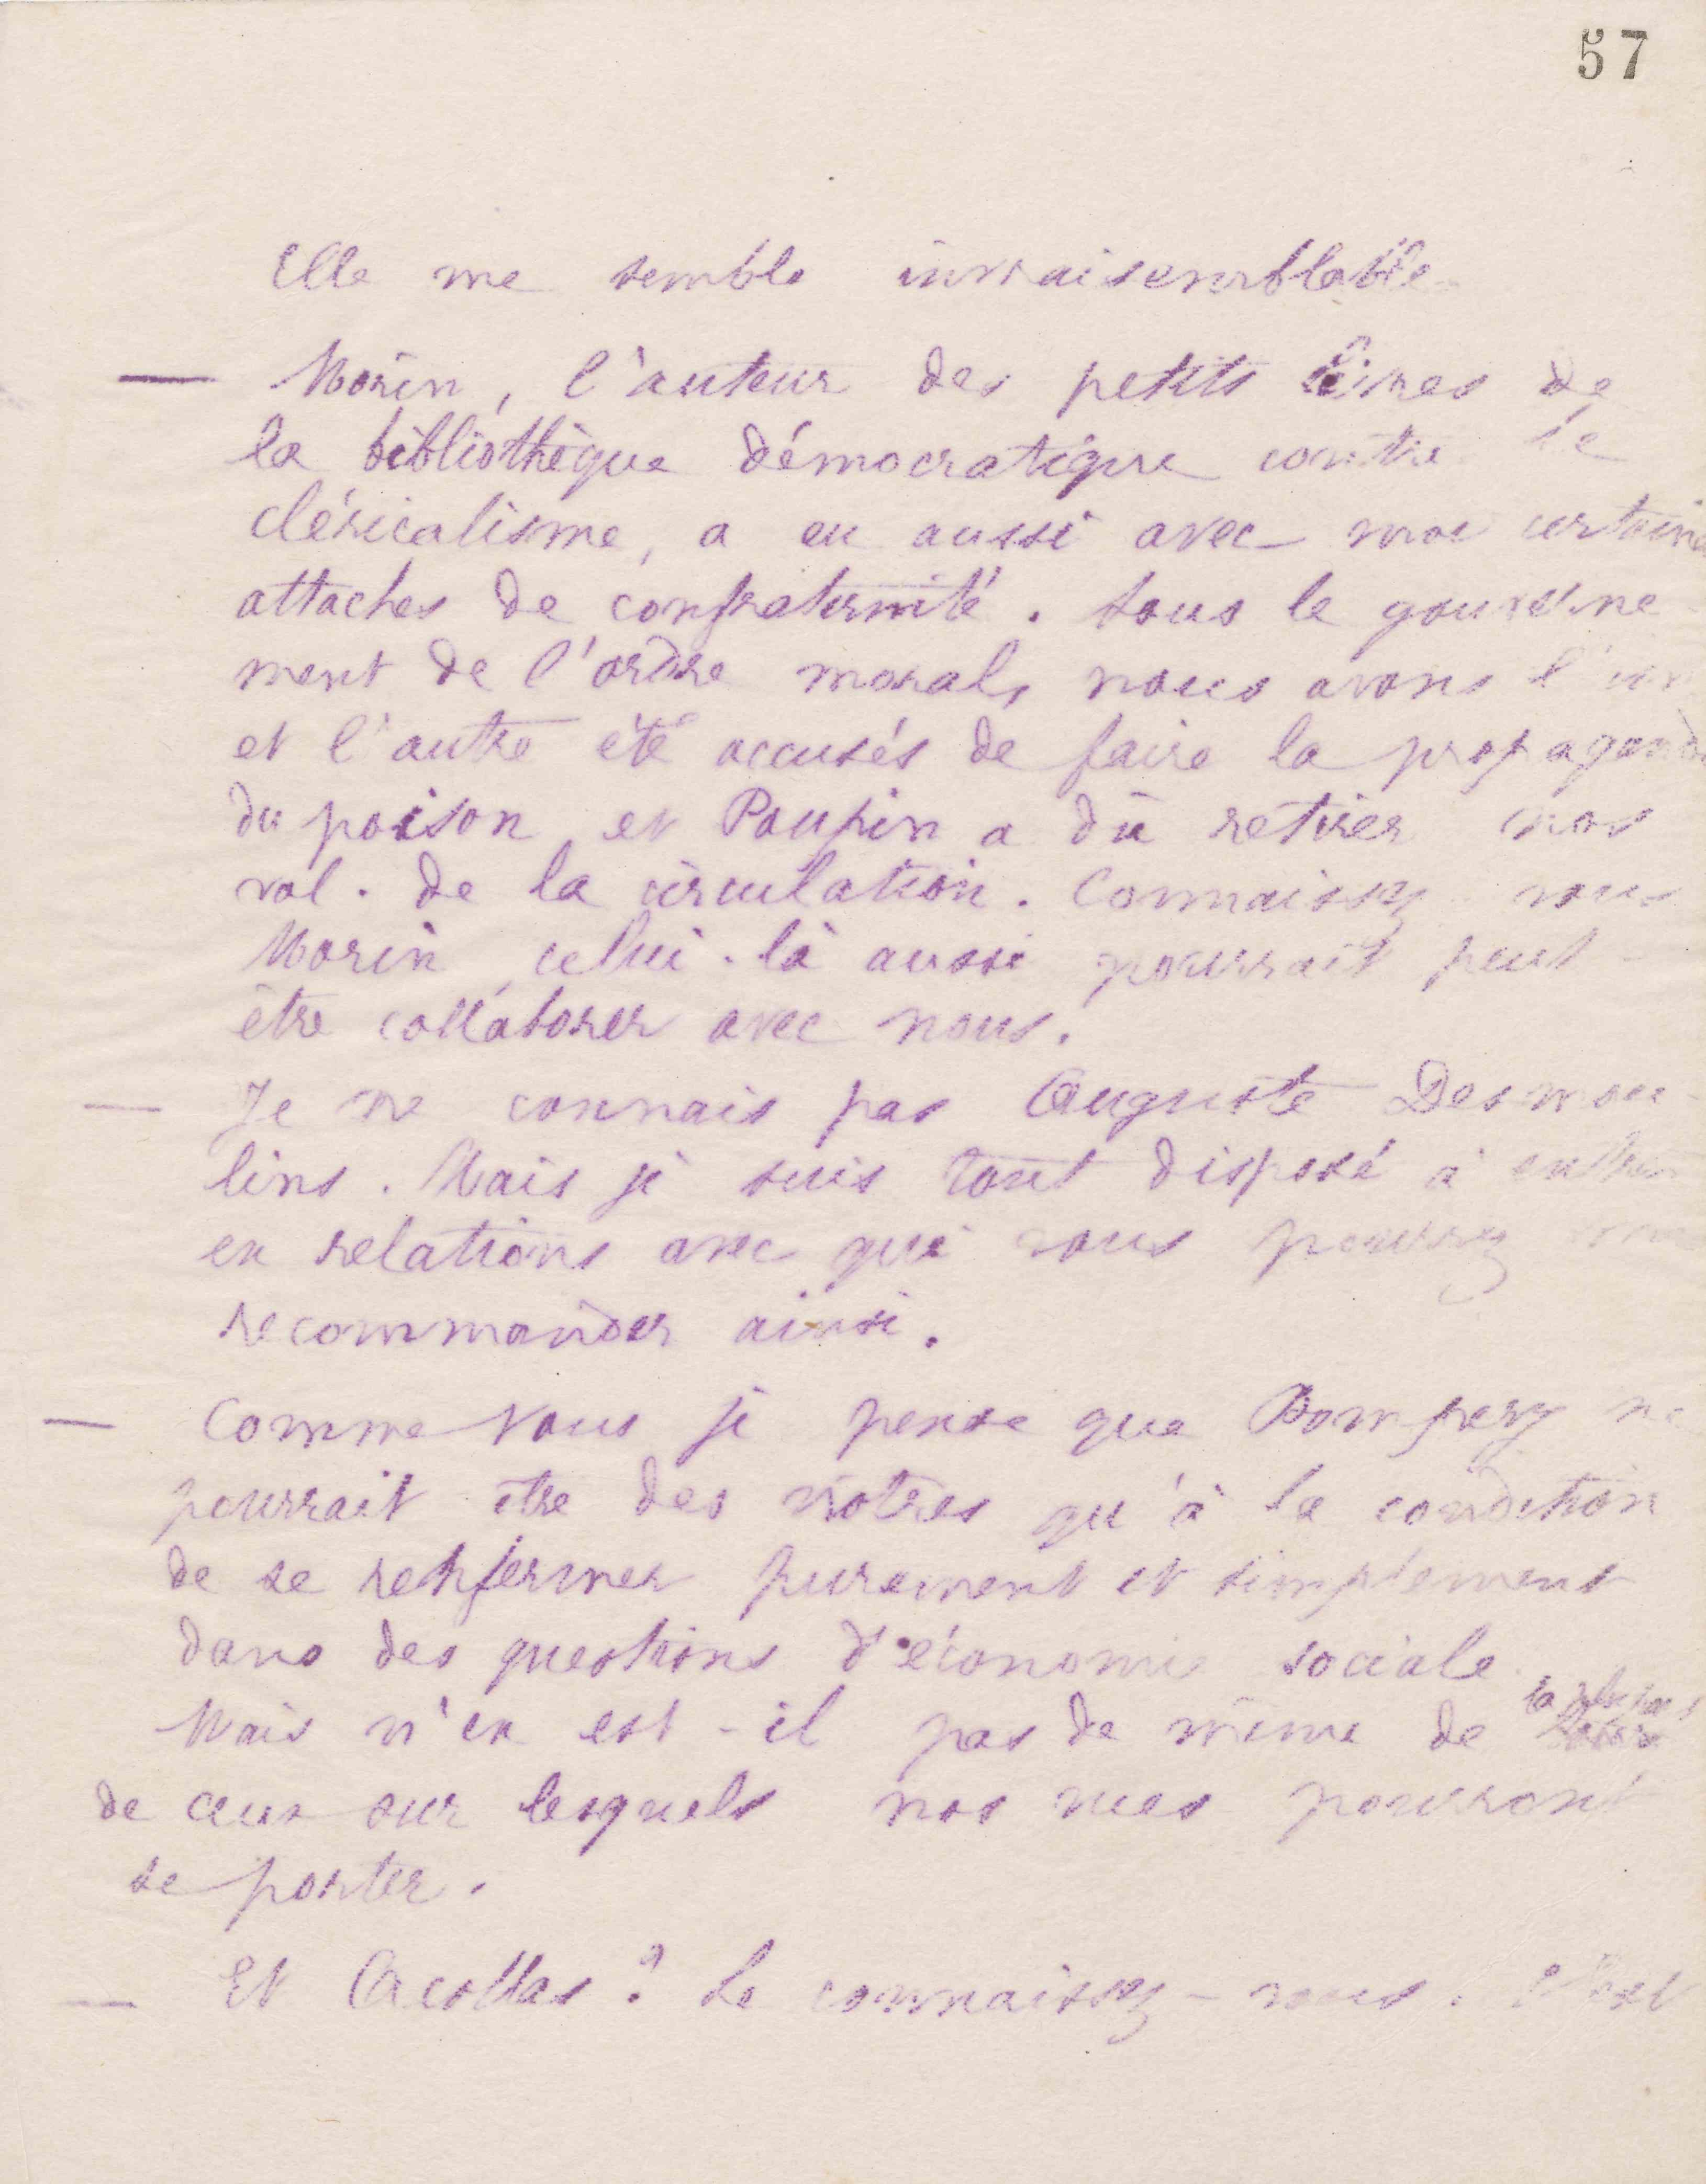 57
Elle me semble invraisemblable
— Morin, l'auteur des petits livres de
la bibliothèque démocratique contre le
cléricalisme, a eu aussi avec moi certaines
attaches de confraternité. Sous le gouverne-
ment de l'ordre moral, nous avons l'un
et l'autre été accusés de faire la propagande
du poison et Poupin a dû retirer nos
vol. de la circulation. Connaissez-vous
Morin, celui-là aussi pourrait peut-
être collaborer avec nous.
— Je ne connais pas Auguste Desmou-
lins. Mais je suis tout disposé à entrer
en relations avec qui vous pourrez
recommander ainsi.
— Comme vous je pense que Pompery ne
pourrait être des nôtres qu'à la condition
de se renfermer purement et simplement
dans des questions d'économie sociale.
Mais n'en est-il pas de même de la plupart
de ceux sur lesquels nos vues pourront
se porter.
— Et Acollas ? Le connaissez-vous. C'est